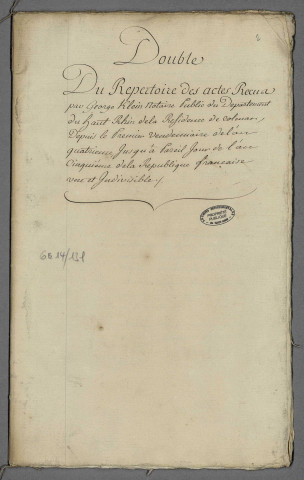 Double
Du Repertoire des actes Recus
par George Klein Notaire Public du Departement
du haut Rhin de la Residence de Colmar,
Depuis le Premier vendemiaire de l'an
quatrieme Jusqu'à Pareil Jour de l'an
Cinquième de la Republique française
une et Indivisible
PROPRIÉTÉ
PUBLIQUE